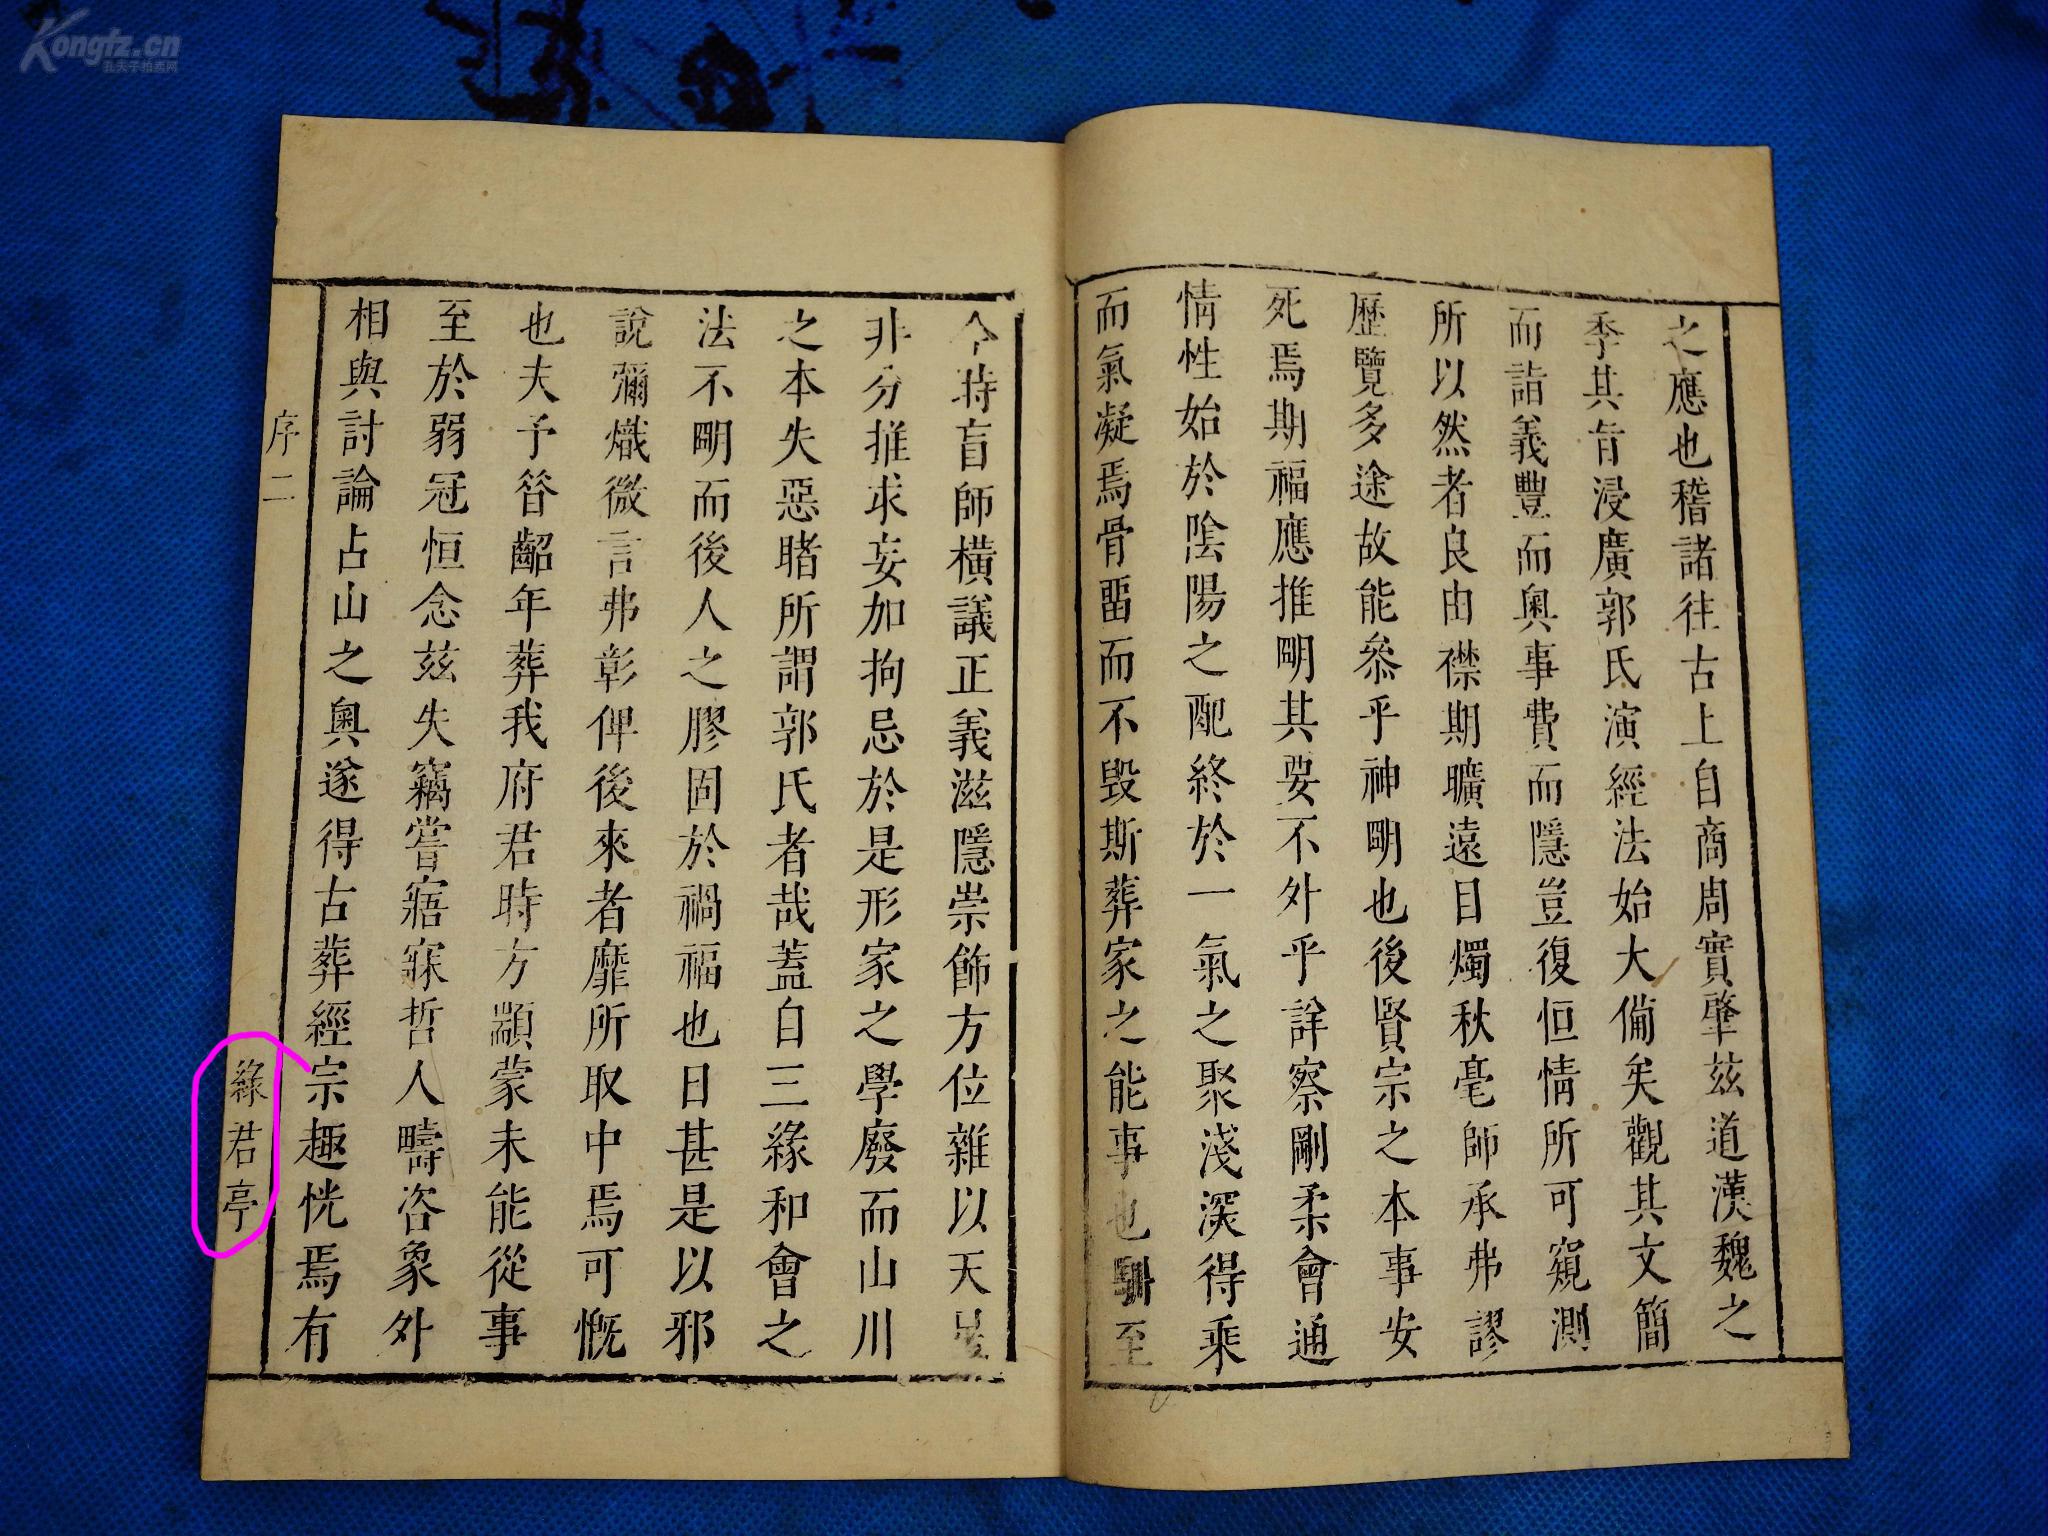 Kongfz.cn
孔夫子拍卖网
之應也稽諸往古上自商周實肇茲道漢魏之
季其肯浸廣郭氏演經法始大備矣觀其文簡
而詣義豐而奧事費而隱豈復恒情所可窺測
所以然者良由襟期曠遠目燭秋毫師承弗謬
歷覽多途故能叅乎神朙也後賢宗之本事安
死焉期福應推朙其要不外乎詳察剛柔會通
情性始於陰陽之配終於一氣之聚淺深得乘
而氣凝焉骨畱而不毀斯葬家之能事也至
今時盲師橫議正義滋隱崇飾方位雜以天星
非分推求妄加拘忌於是形家之學廢而山川
之本失惡睹所謂郭氏者哉蓋自三緣和會之
法不朙而後人之膠固於禍福也日甚是以邪
說彌熾微言弗彰俾後來者靡所取中焉可慨
也夫予昝齠年葬我府君時方顓蒙未能從事
至於弱冠恒念茲失竊嘗寤寐哲人疇咨象外
相與討論占山之奧遂得古葬經宗趣恍焉有
序二
綠君亭